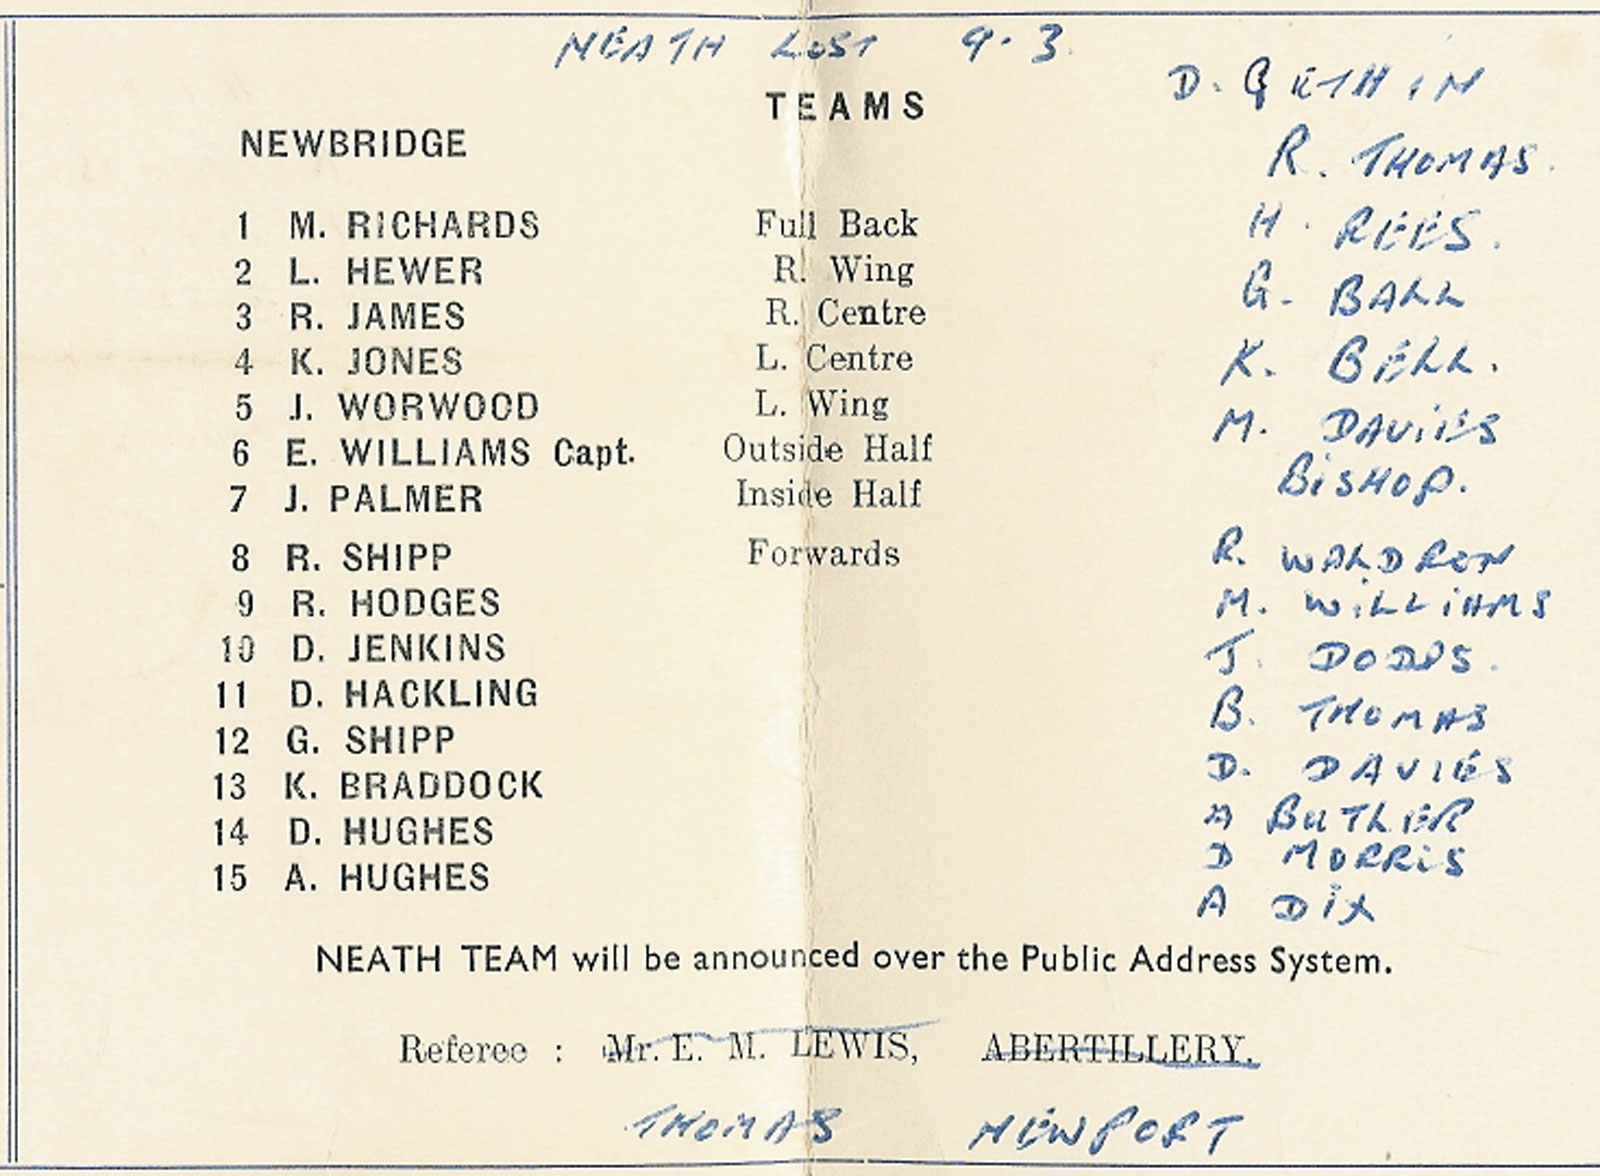 NEATH LOST 9-3
TEAMS
D. GETHIN
NEWBRIDGE
R. THOMAS.
1 M. RICHARDS Full Back H. REES.
2 L. HEWER R. Wing G. BALL
3 R. JAMES R. Centre K. BELL.
4 K. JONES L. Centre M. DAVIES
5 J. WORWOOD L. Wing BISHOP.
6 E. WILLIAMS Capt. Outside Half
7 J. PALMER Inside Half
8 R. SHIPP Forwards R. WALDRON
9 R. HODGES M. WILLIAMS
10 D. JENKINS J. DODDS.
11 D. HACKLING B. THOMAS
12 G. SHIPP D. DAVIES
13 K. BRADDOCK A BUTLER
14 D. HUGHES D MORRIS
15 A. HUGHES A DIX
NEATH TEAM will be announced over the Public Address System.
Referee : Mr. E. M. LEWIS, ABERTILLERY.
THOMAS NEWPORT